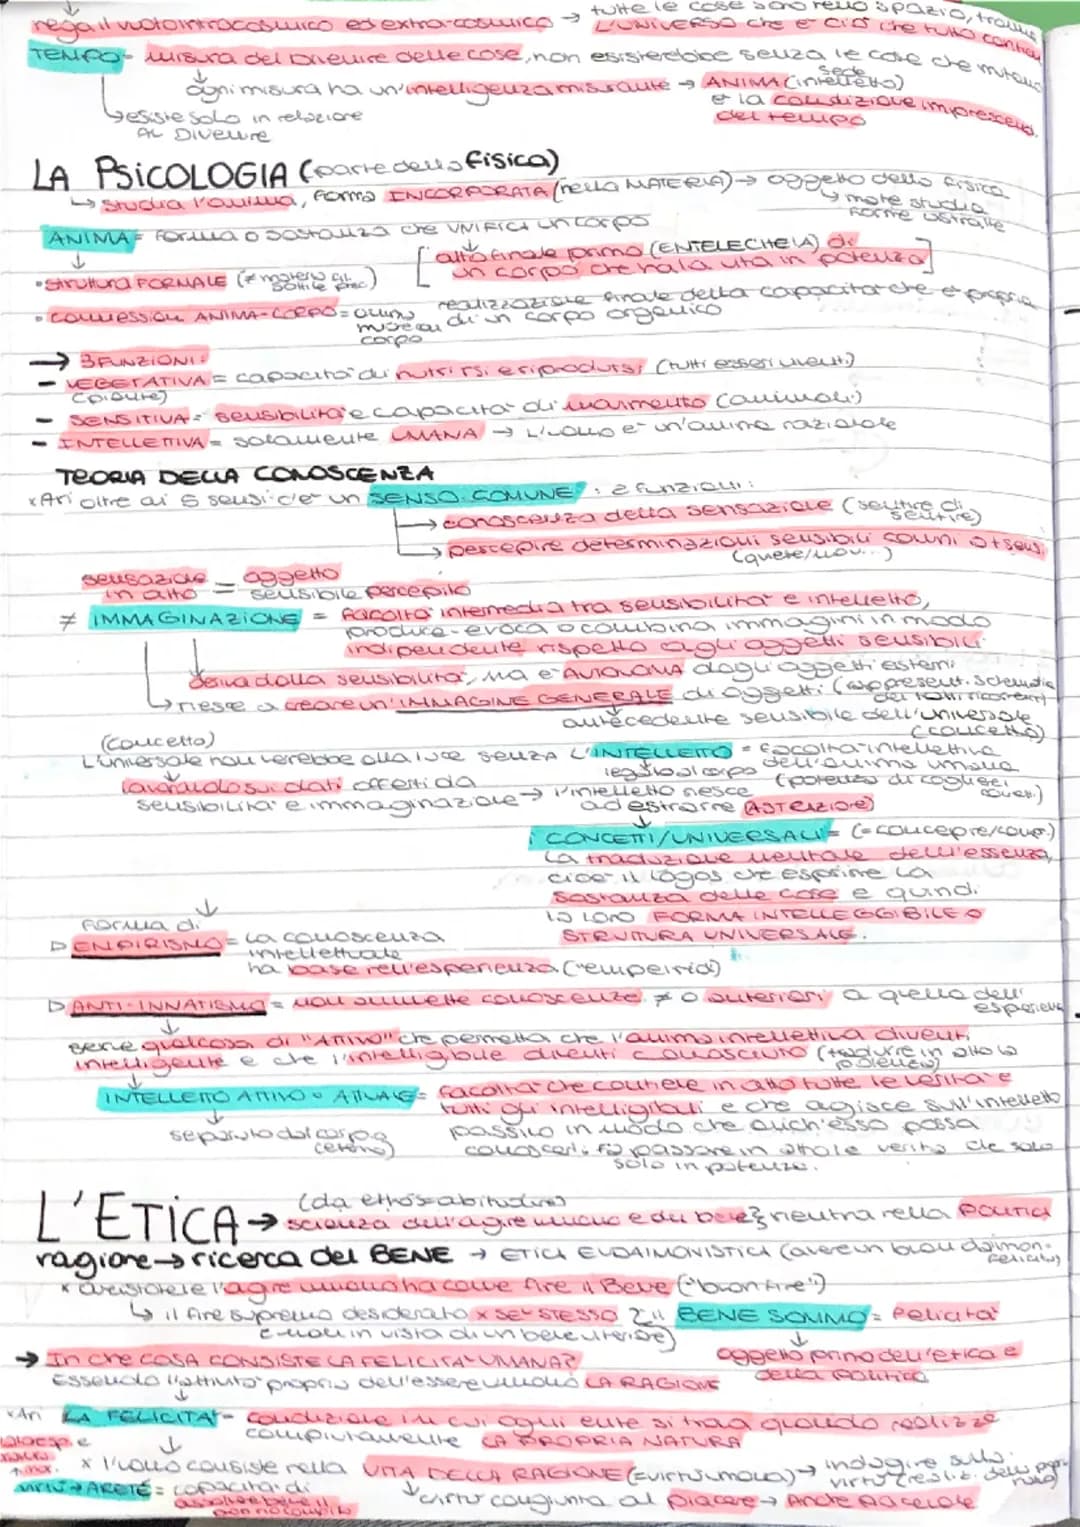 nega il vuoto intracosmico ed extra-cosmico → tutte le cose sono nello spazio, tranne
L'UNIVERSO che è ciò che tutto contiene
TEMPO = misura del Divenire delle cose, non esisterebbe senza le cose che mutano
ogni misura ha un'intelligenza misurante → ANIMA (intelletto)
sede
è la condizione imprescind.
del tempo
esiste solo in relazione
AL DIVENIRE
LA PSICOLOGIA (parte della fisica)
↳ studia l'anima, forma INCORPORATA (nella MATERIA) → oggetto della fisica
↳ mate studia
forme astratte
ANIMA = forma o sostanza che UNIFICA un corpo
[atto finale primo (ENTELECHEIA) di
un corpo che ha la vita in potenza]
• struttura FORMALE (≠ materia
• connessione ANIMA-CORPO = realizzazione finale della capacità che è propria
di un corpo organico
corpo
→ 3 FUNZIONI:
- VEGETATIVA = capacità di nutrirsi e riprodursi (tutti esseri viventi)
(piante)
- SENSITIVA = sensibilità e capacità di movimento (animali)
- INTELLETTIVA = solamente UMANA → L'uomo è un'anima razionale
TEORIA DELLA CONOSCENZA
x Ari oltre ai 5 sensi c'è un SENSO COMUNE: 2 funzioni:
→ conoscenza della sensazione (sentire di
sentire)
→ percepire determinazioni sensibili comuni a + sensi
(quiete/mov...)
sensazione = oggetto
in atto sensibile percepito
≠ IMMAGINAZIONE = facoltà intermedia tra sensibilità e intelletto,
produce-evoca o combina immagini in modo
indipendente rispetto agli oggetti sensibili
deriva dalla sensibilità, ma è AUTONOMA dagli oggetti esterni
↳ riesce a creare un'IMMAGINE GENERALE di oggetti (rappresent. schematica
dei tratti ricorrenti)
antecedente sensibile dell'universale
(concetto)
(concetto)
L'universale non verrebbe alla luce senza L'INTELLETTO = facoltà intellettiva
dell'anima umana
legato al corpo (potenza di cogliere i
lavorando sui dati offerti da
sensibilità e immaginazione → l'intelletto riesce
ad estrarre (ASTRAZIONE)
CONCETTI/UNIVERSALI = (= concepire/
La traduzione mentale dell'essenza,
cioè il logos che esprime la
sostanza delle cose e quindi
la loro FORMA INTELLEGGIBILE O
STRUTTURA UNIVERSALE.
Forma di
▷ EMPIRISMO = La conoscenza
intellettuale
ha base nell'esperienza (empeiria)
▷ ANTI-INNATISMO = non ammette conoscenze ≠ o anteriori a quella dell'
esperienza
serve qualcosa di "ATTIVO" che permetta che l'anima intellettiva diventi
intelligente e che l'intelligibile diventi conosciuto (tradurre in atto la
potenza)
INTELLETTO ATTIVO o ATTUALE = facoltà che contiene in atto tutte le verità e
tutti gli intelligibili e che agisce sull'intelletto
separato dal corpo passivo in modo che anch'esso possa
(eterno) conoscerli: fa passare in attuale verità che sono
solo in potenza.
L'ETICA → (da ethos = abitudine)
scienza dell'agire umano e del bene rientra nella POLITICA
ragione → ricerca del BENE → ETICA EUDAIMONISTICA (avere un buon daimon-
felicità)
x aristotele l'agire umano ha come fine il Bene ("buon fine")
↳ il fine supremo desiderato x SE STESSO è il BENE SOMMO = felicità
e non in vista di un bene ulteriore)
oggetto primo dell'etica e
della politica
→ In che COSA CONSISTE LA FELICITÀ UMANA?
Essendo l'attività propria dell'essere umano LA RAGIONE
x Ari LA FELICITÀ = condizione in cui ogni ente si trova quando realizza
compiutamente LA PROPRIA NATURA
x l'uomo consiste nella VITA DELLA RAGIONE (= virtù umana) → indagine sulla
virtù
VIRTÙ → ARETÉ = capacità di
virtù congiunta al piacere → Anche piacevole